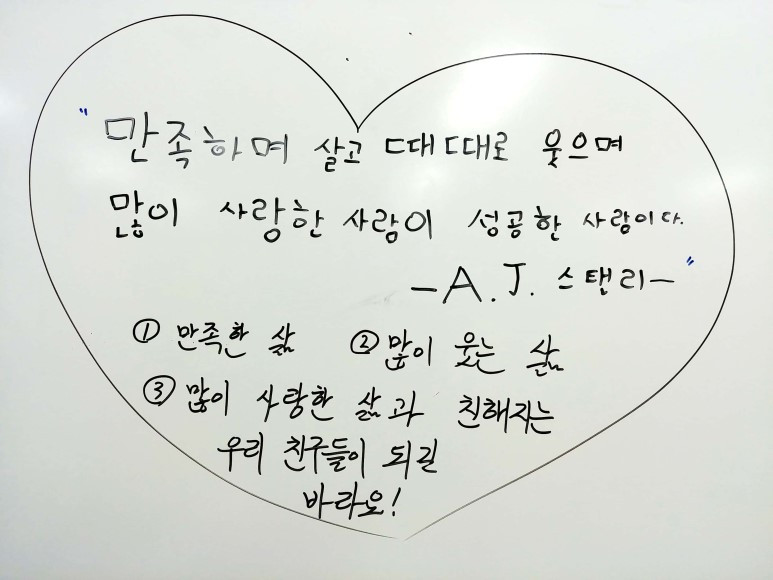 "만족하며 살고 때때로 웃으며
많이 사랑한 사람이 성공한 사람이다.
-A.J. 스탠리-"
① 만족한 삶 ② 많이 웃는 삶
③ 많이 사랑한 삶과 친해지는
우리 친구들이 되길
바라오!